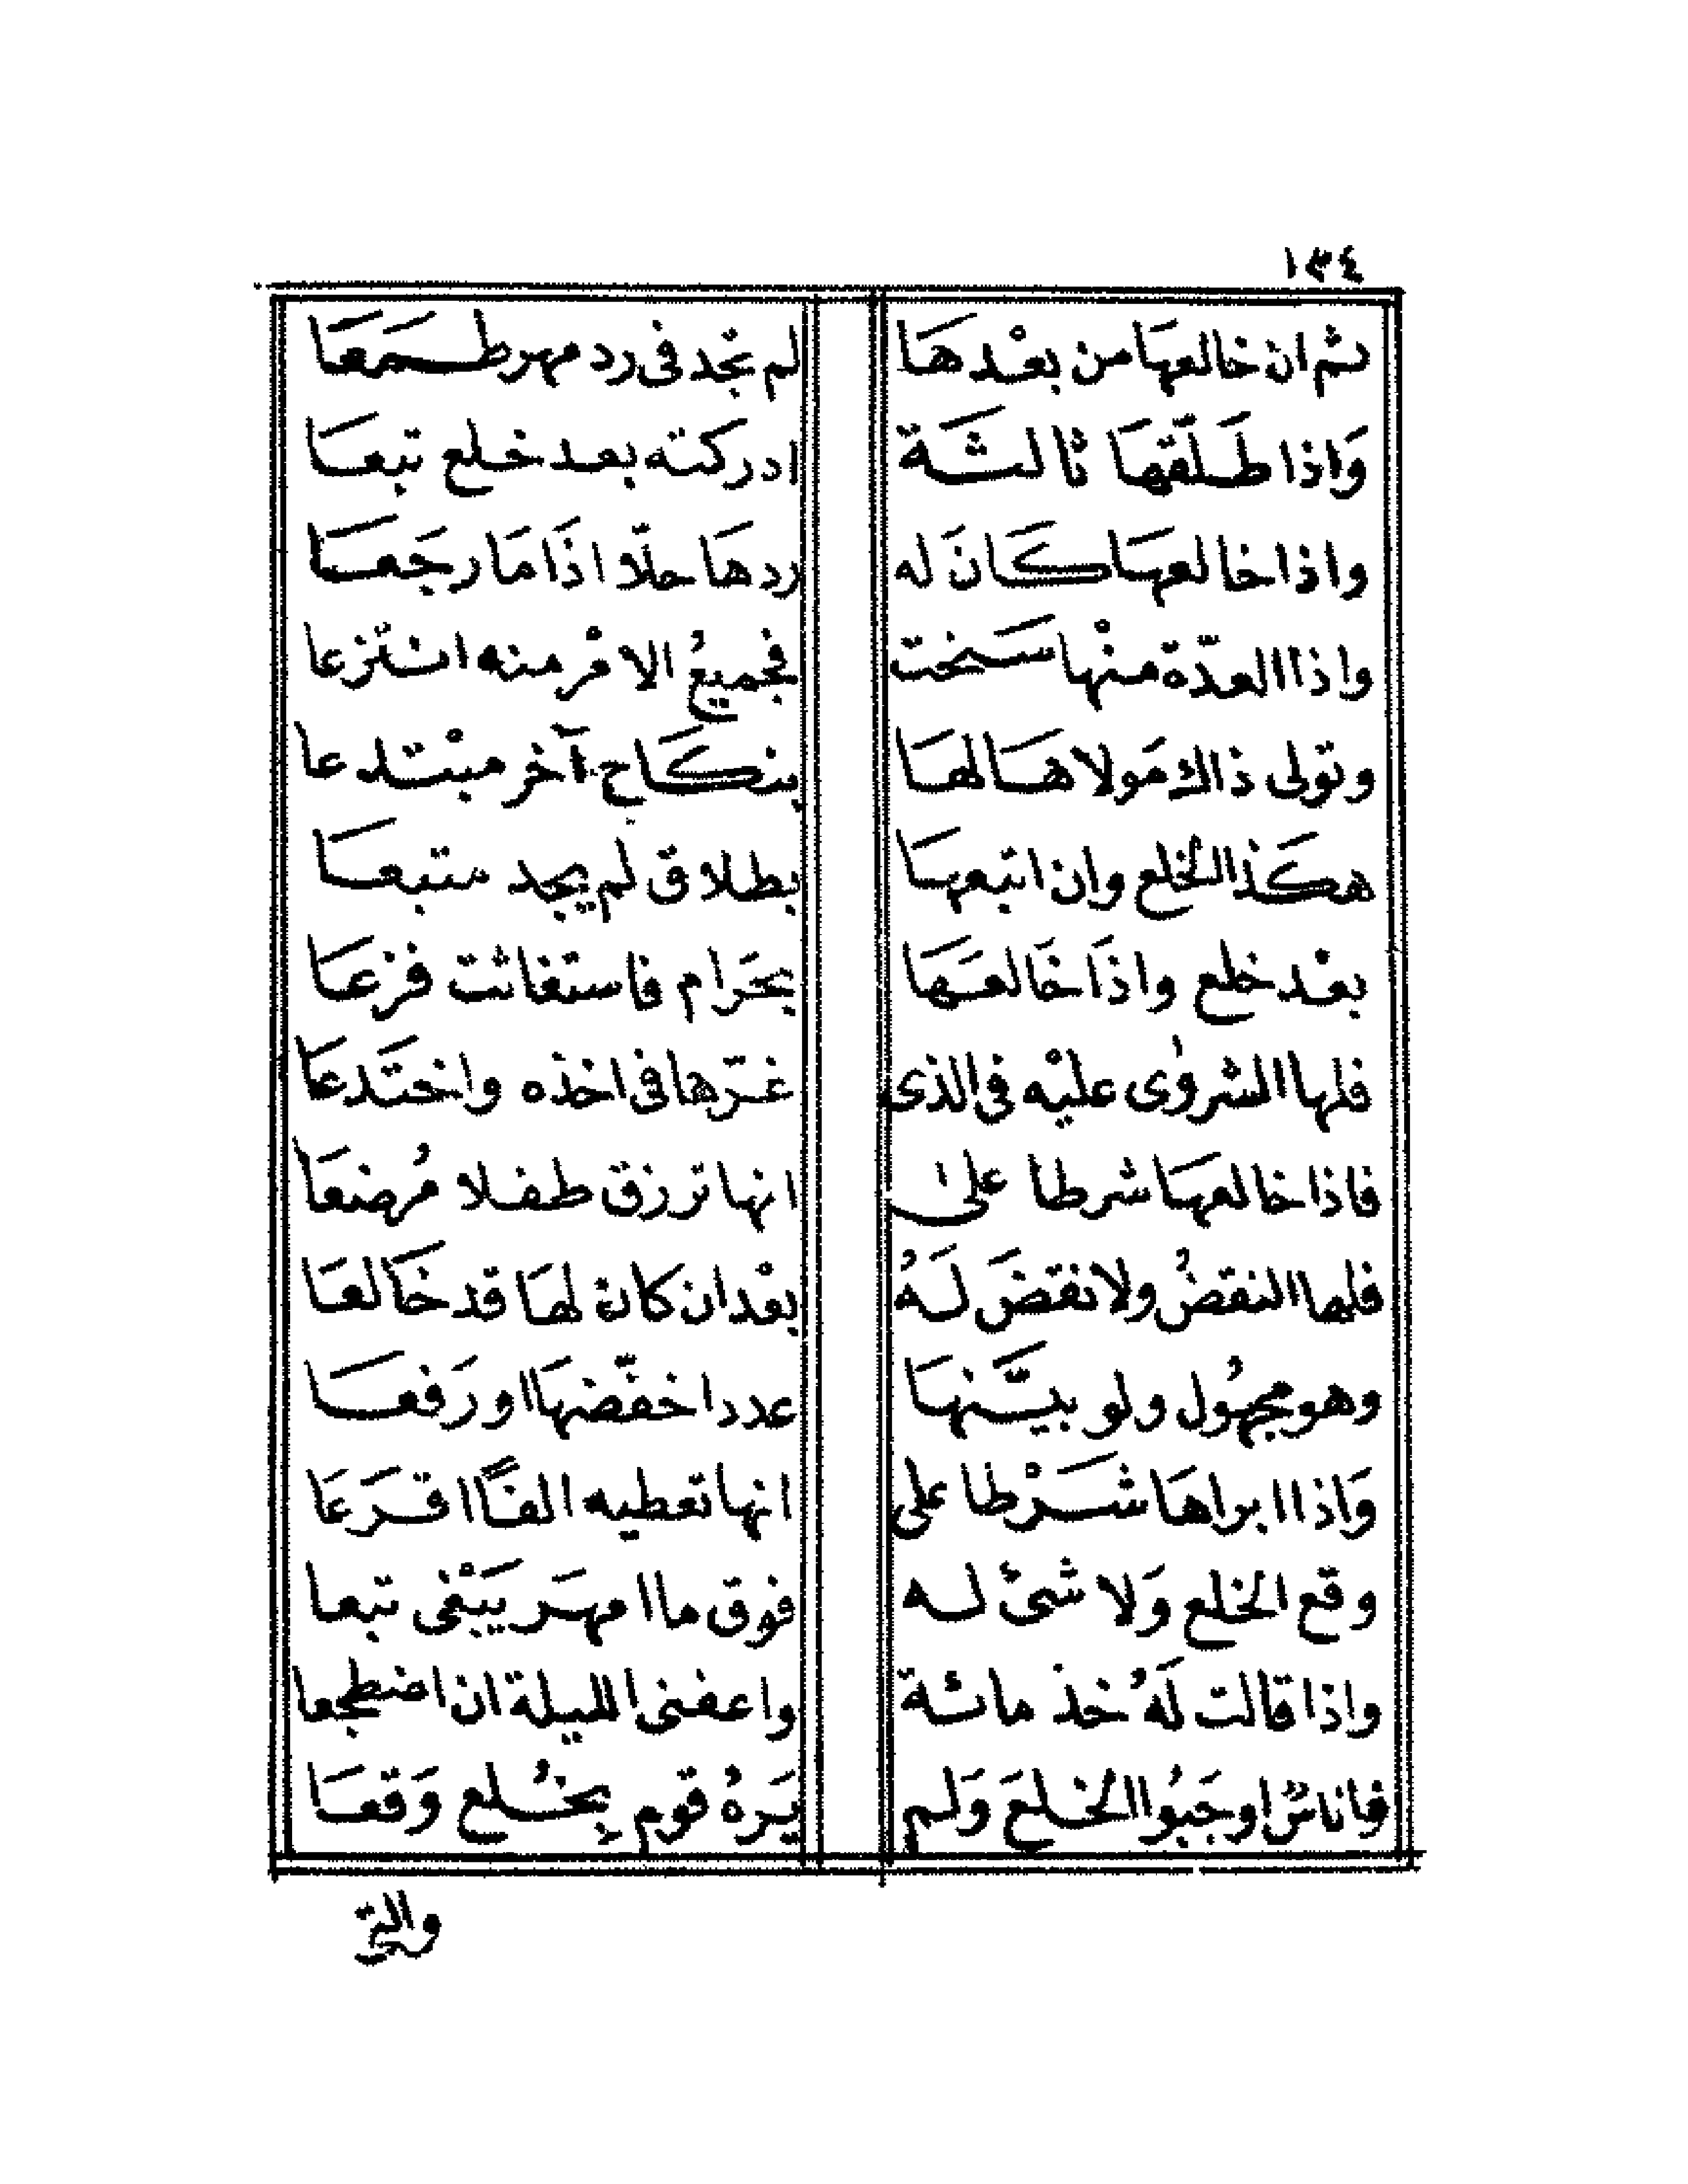 ١٣٤
ثم ان خالعهَا من بعْدهَا لم تجد فى رد مهر طمَعَا
وَاذا طَلّقهَا ثالثَة ادركته بعد خلع تبعَا
واذا خالعهَا كَانَ له ردهَا حلّا اذَا مَا رجَعَا
واذا العدّة منْها سَنحت فجميعُ الامْر منه انتزعا
وتولى ذاك مَولاهَا لهَا بنكَاح آخر مبْتدعا
هكَذا الخلع وان اتبعهَا بطلاق لم يجد متبعَا
بعْد خلع واذَا خَالعَهَا بحَرام فاستغاثت فزعَا
فلها الشروٰى عليْه فى الذى غرّها فى اخذه واختَدعَا
فاذا خالعهَا شرطا علىٰ انها ترزق طفلا مُرضعَا
فلها النقضُ ولا نقضَ لَهُ بعْد ان كان لهَا قد خَالعَا
وهو مجهُول ولو بيَّنهَا عددا خفّضهَا او رَفعَا
وَاذا ابراهَا شَرْطا على انها تعطيه الفًا اقرَعَا
وقع الخلع وَلا شئ له فوق ما امهَر يَبْغى تبعا
واذا قالت لَهُ خذ مائة واعفنى الليلة ان اضطجعا
فاناسٌ اوجَبُوا الخلعَ وَلم يَرهُ قوم بِخُلع وَقعَا
والتى